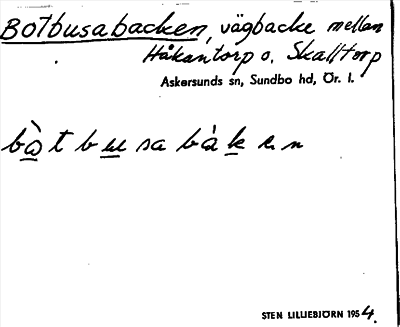 Botbusabacken, vägbacke mellan
Håkantorp o. Skalltorp
Askersunds sn, Sundbo hd, Ör. l.
bòtbusabáken
STEN LILLIEBJÖRN 1954.